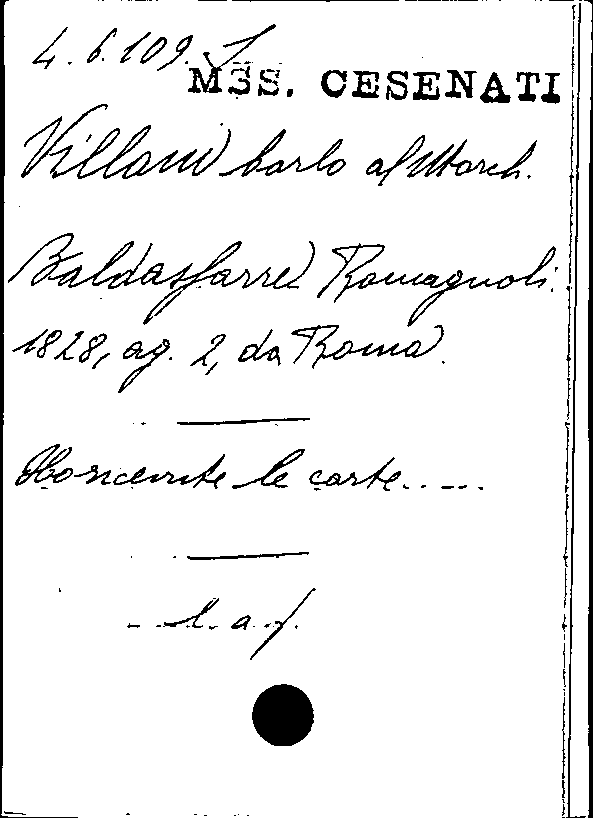 4.6.109.
MSS. CESENATI
Villani Carlo al March.
Baldassarre Romagnoli.
1828, ag. 2, da Roma.
le carte.....
l. a. f.